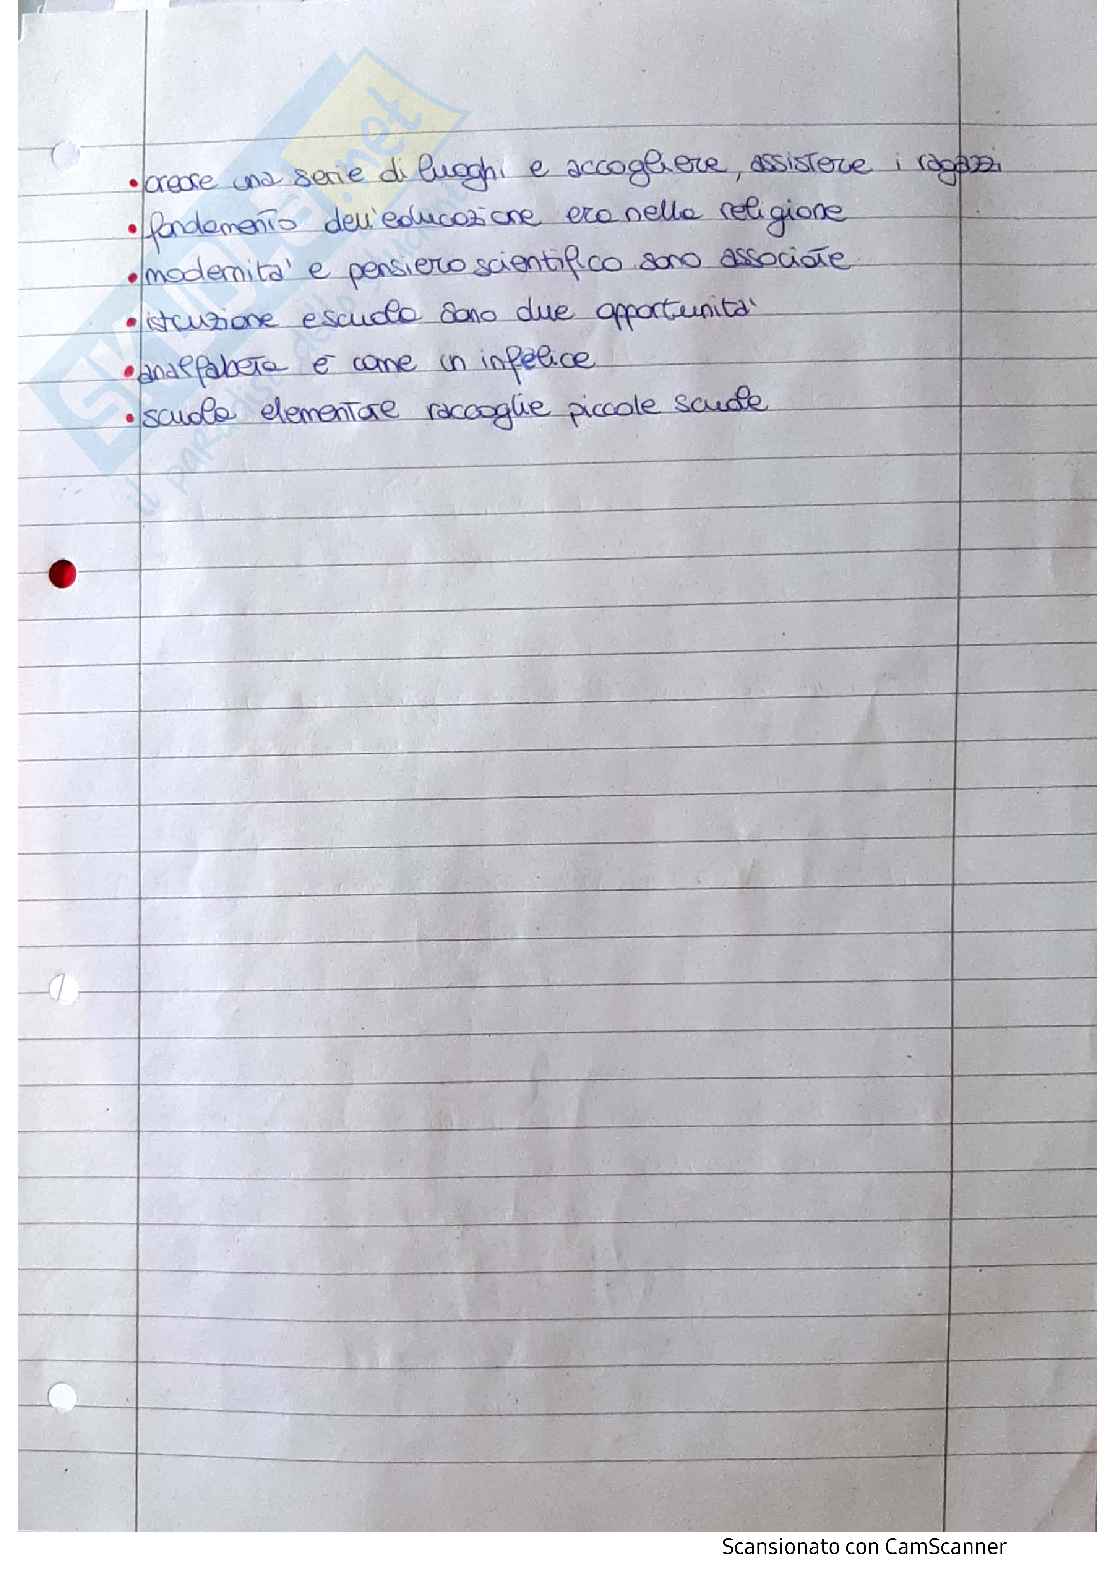 • creare una serie di luoghi e accogliere, assistere i ragazzi
• fondamento dell'educazione era nella religione
• modernita' e pensiero scientifico sono associate
• istruzione e scuola sono due opportunita'
• analfabeta è come un infelice
• scuola elementare raccoglie piccole scuole
SKUOLA.net
Scansionato con CamScanner